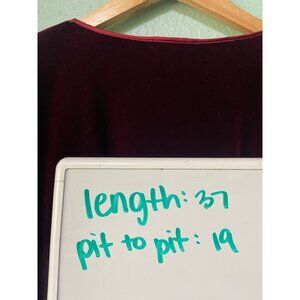 length: 37
pit to pit: 19